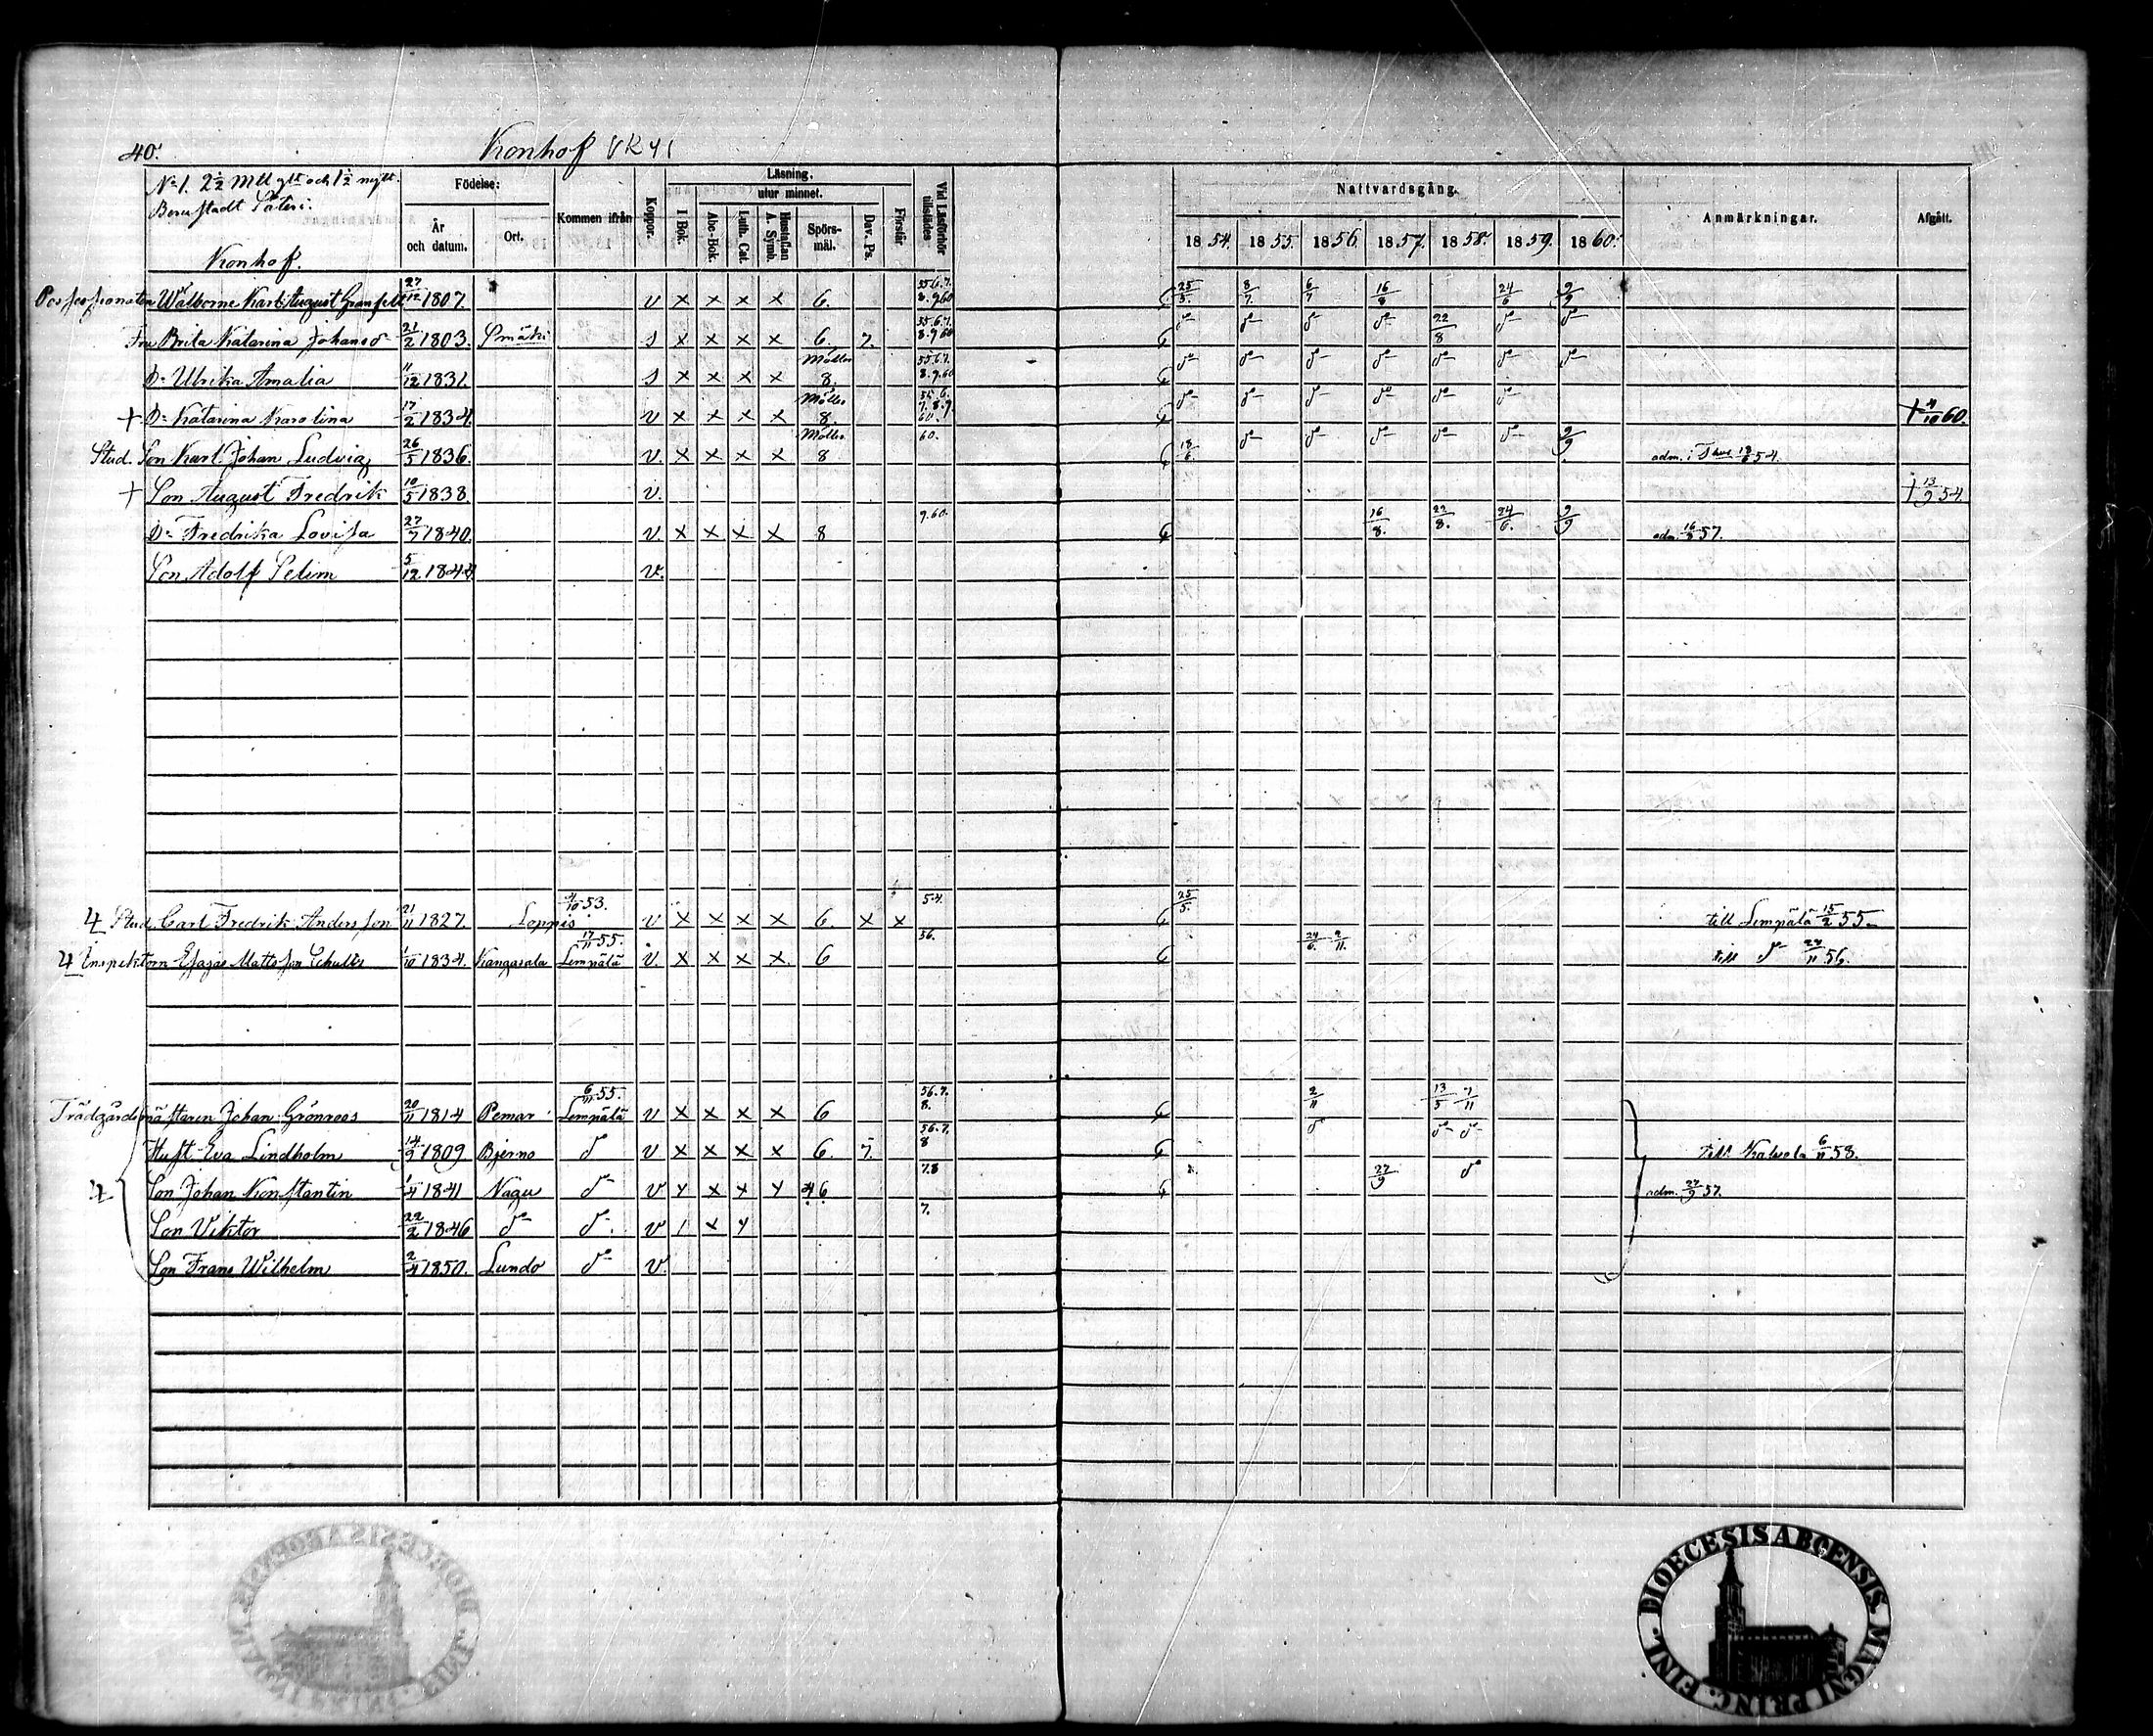 40.
Kronhof VK 41
No 1. 2 1/2 Mtl glt och 1 1/2 nytt.
Berustadt Säteri.
Kronhof.
Födelse:
År och datum.
Ort.
Kommen ifrån
Koppor.
Läsning.
I Bok.
utur minnet.
Abc-Bok
Luth. Cat.
Hustaflan A. Symb.
Spörs-mål.
Dav. Ps.
Förstår
Vid Läsförhör tillstädes
Nattvardsgång.
1854. 1855. 1856. 1857. 1858. 1859. 1860.
Anmärkningar.
Afgått.
Walborne Karl August Granfelt 27/12 1807. v x x x x 6. 25/5. 8/7. 6/7 16/8 24/6 9/9
Fru Brita Katarina Johansd 21/2 1803. s x x x x 6. 7. 22/8
Dr Ulrika Amalia 11/12 1831. s x x x x Möller 8.
+ Dr Katarina Karolina 17/2 1834. v x x x x Möller 8. + 4/10 60.
Stud. Son Karl Johan Ludvig 26/5 1836. v. x x x x Möller 8 60. 18/6 9/9 adm. i 18/6 54.
+ Son August Fredrik 10/5 1838 v. + 13/9 54.
Dr Fredrika Lovisa 27/7 1840. v. x x x x 8 9.60. 16/8. 22/8. 24/6. 9/9 adm. 16/8 57.
Son Adolf Selim 5/12 1844. v.
Stud. Carl Fredrik Andersson 21/11 1827. Loppis 4/10 53. v x x x x 6. x x 54. 25/5. till Lempälä 15/2 55
Inspektorn Esajas Mattsson Schultz 1/10 1834. Kangasala Lempälä 17/11 55. v. x x x x 6 56. 24/6. 2/11. till do 22/11 56.
Trädgårdsmästaren Johan Grönroos 20/11 1814 Pemar Lempälä 6/11 55. v x x x x 6 56.7.8. 2/11 13/5 7/11
Hust. Eva Lindholm 14/9 1809 Bjerno do v x x x x 6. 7. 56.7.8 till Kalvola 6/11 58.
Son Johan Konstantin 1/4 1841 Nagu do v x x x x 6 7.8 27/9 do adm. 27/9 57.
Son Viktor 22/2 1846 do do v 7.
Son Frans Wilhelm 2/4 1850. Lundo do v.
DIOECESIS ABOENSIS. MAGNI PRINC. FINL.